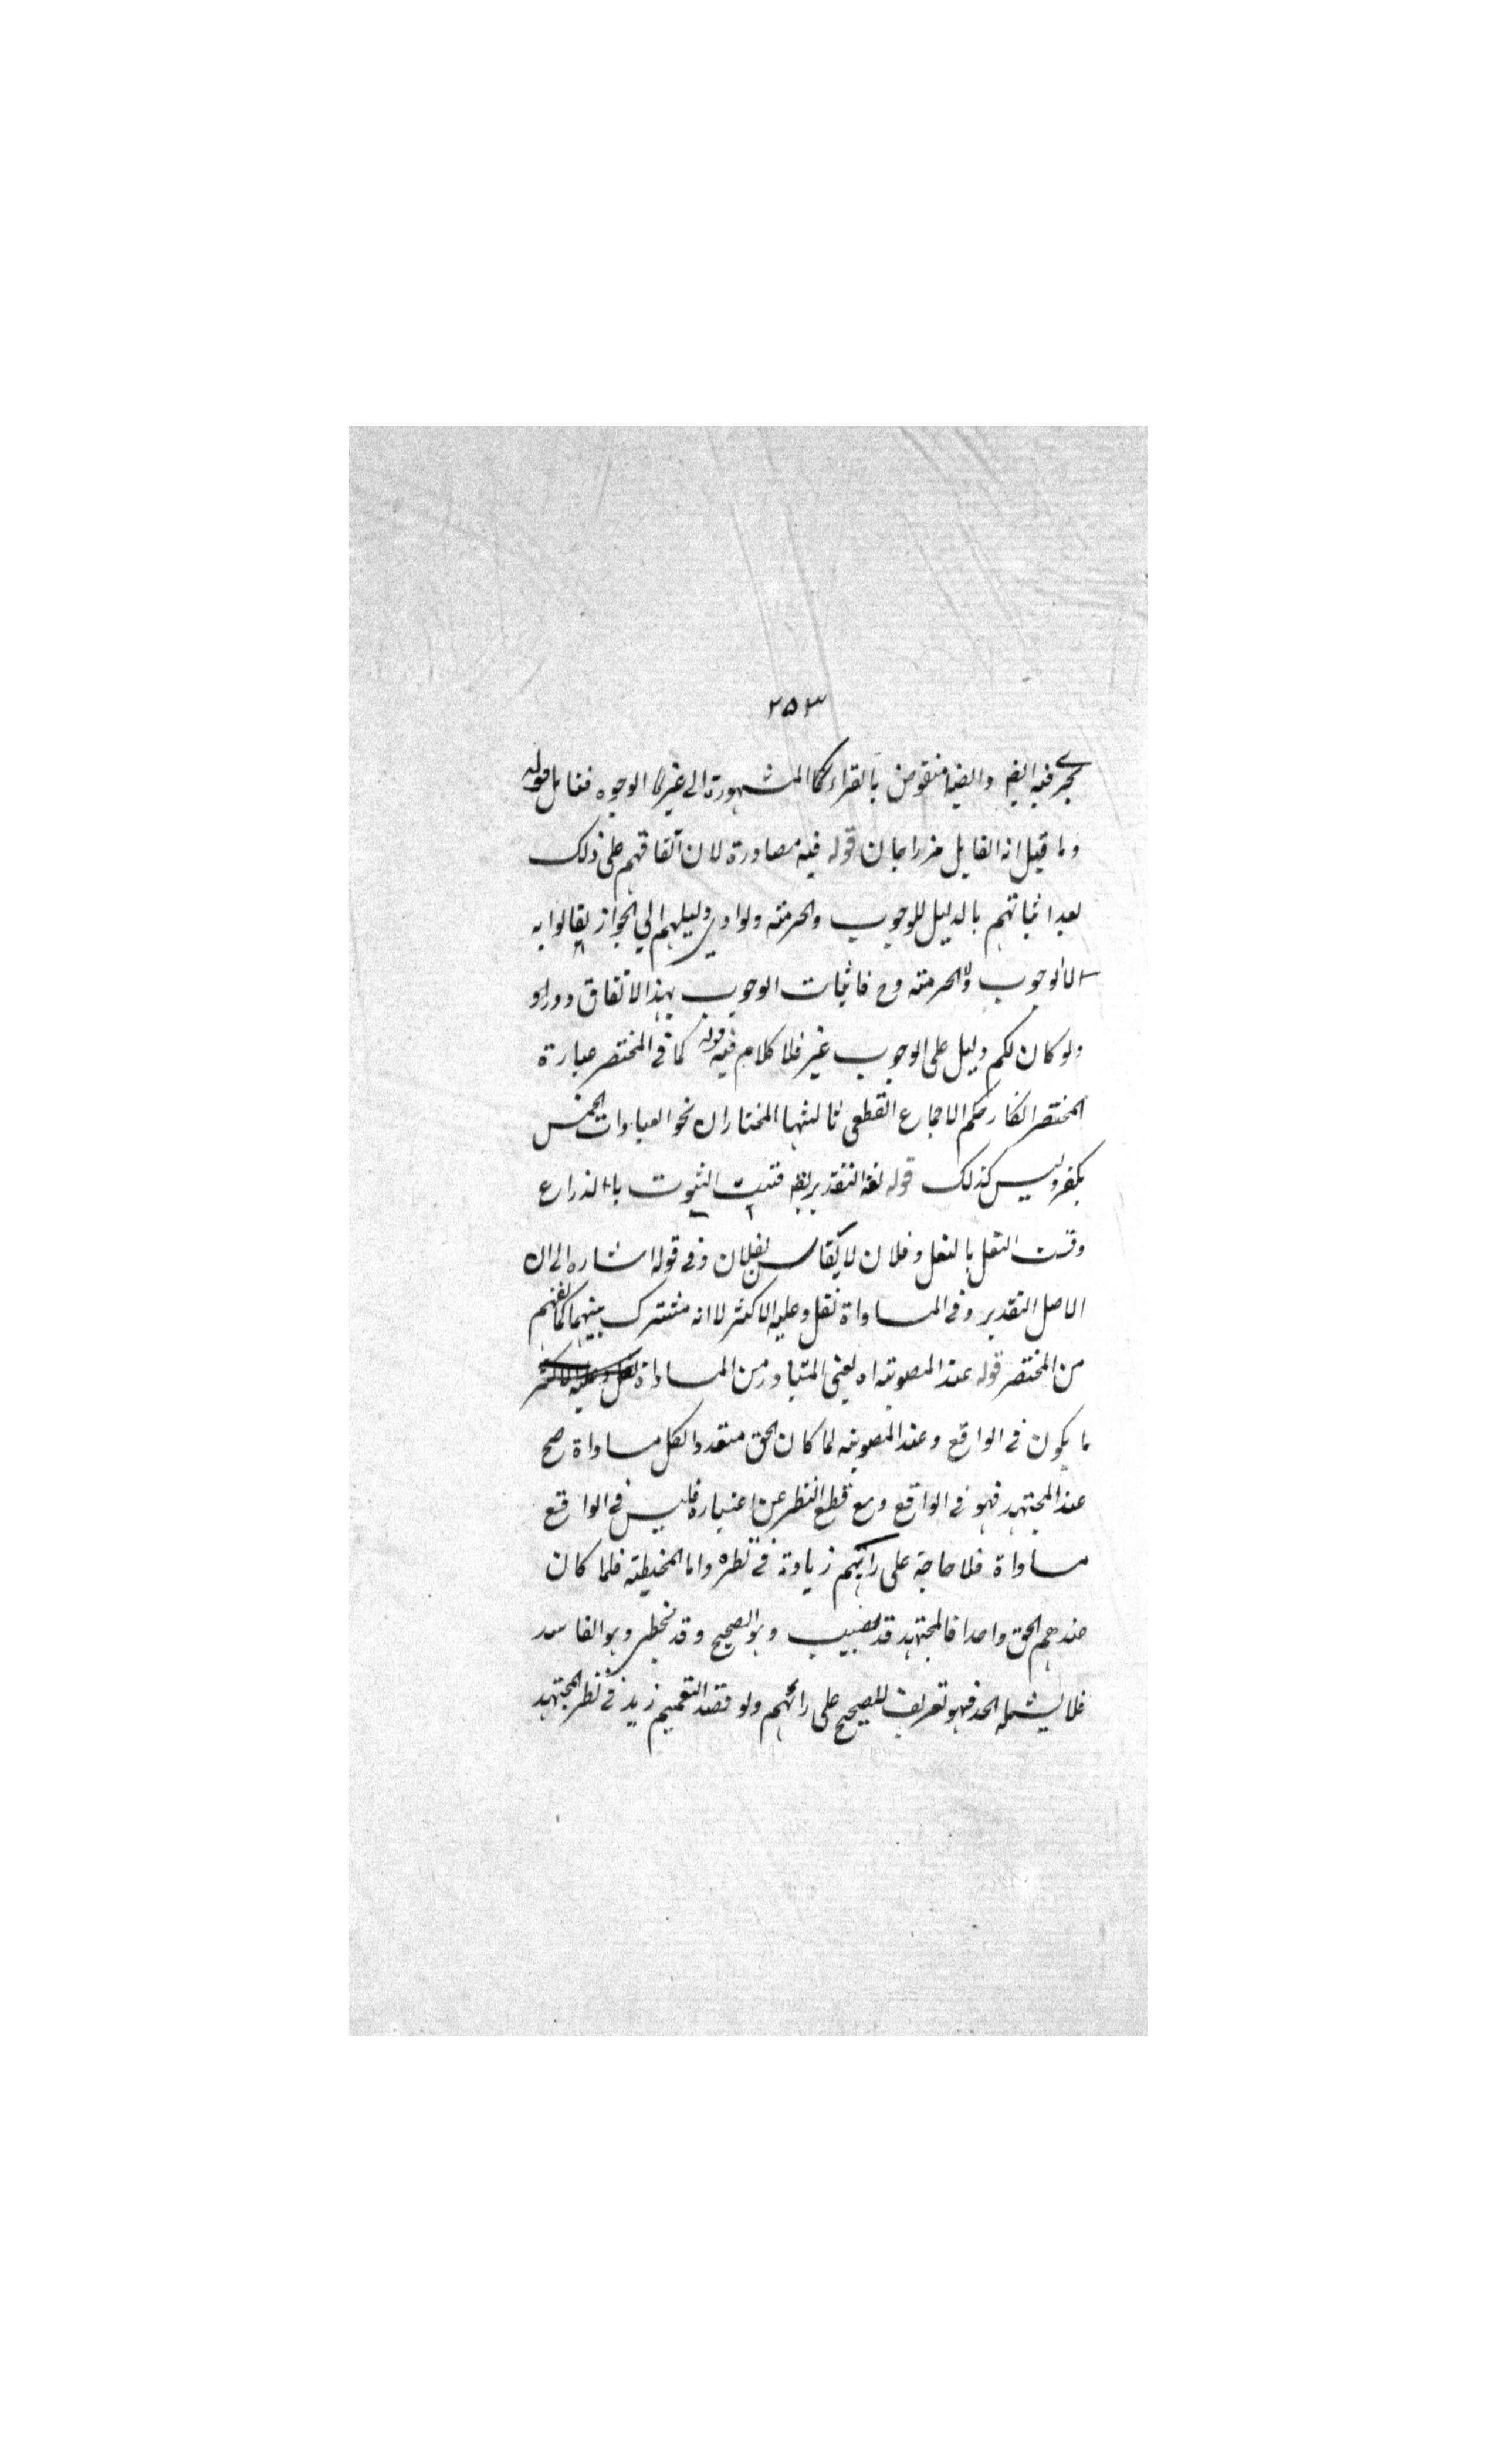 ٢٥٣
يجرى فيه ايضا وايضا منقوض بالقراءة المشهورة الى غيرها الوجوه فتامل قوله
وما قيل انه القايل قوله فيه مصادرة لان اتفاقهم على ذلك
بعد اثباتهم بالدليل للوجوب والحرمته ولو ادى دليلهم الى الجواز لقالوا به
لا الوجوب ولا الحرمته وح فاثبات الوجوب بهذ الاتفاق دور او
ولو كان لكم دليل على الوجوب غير فلا كلام فيه قوله كما فى المختصر عبارة
المختصر انكار حكم الاجماع القطعى ثالثها المختار ان نحو العبادات الخمس
يكفر وليس كذلك قوله لغة التقدير يقه قست الثوب بالذراع
وقست النعل بالنعل وفلان لا يقاس بفلان وفى قوله اشاره الى ان
الاصل التقدير وفى المساواة نقل وعليه الاكثر لا انه مشترك بينهما كما يفهم
من المختصر قوله عند المصوبته اه يعنى المتبادر من المساواة نقل وعليه الاكثر
ما يكون فى الواقع وعند المصوبته لما كان الحق متعددا لكل مساواة صح
عند المجتهد فهو فى الواقع ومع قطع النظر عن اعتباره فليس فى الواقع
مساواة فلا حاجة على رائهم زيادة فى نظره واما المخطيته فلما كان
عندهم الحق واحدا فالمجتهد قد يصيب وهو الصحيح وقد يخطى وهو الفاسد
فلا يشمله الحد فهو تعريف للصحيح على رائهم ولو قصد التعميم زيد فى نظر المجتهد